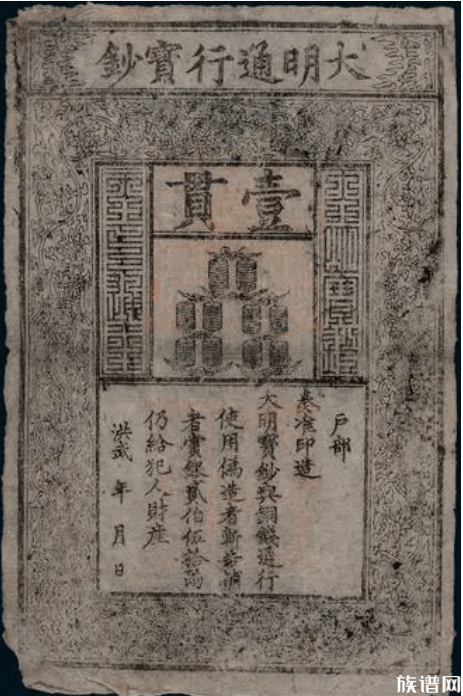 大明通行寶鈔
壹貫
戶部
奏准印造
大明寶鈔與銅錢通行
使用偽造者斬告捕
者賞銀貳伯伍拾兩
仍給犯人財產
洪武 年 月 日
族谱网